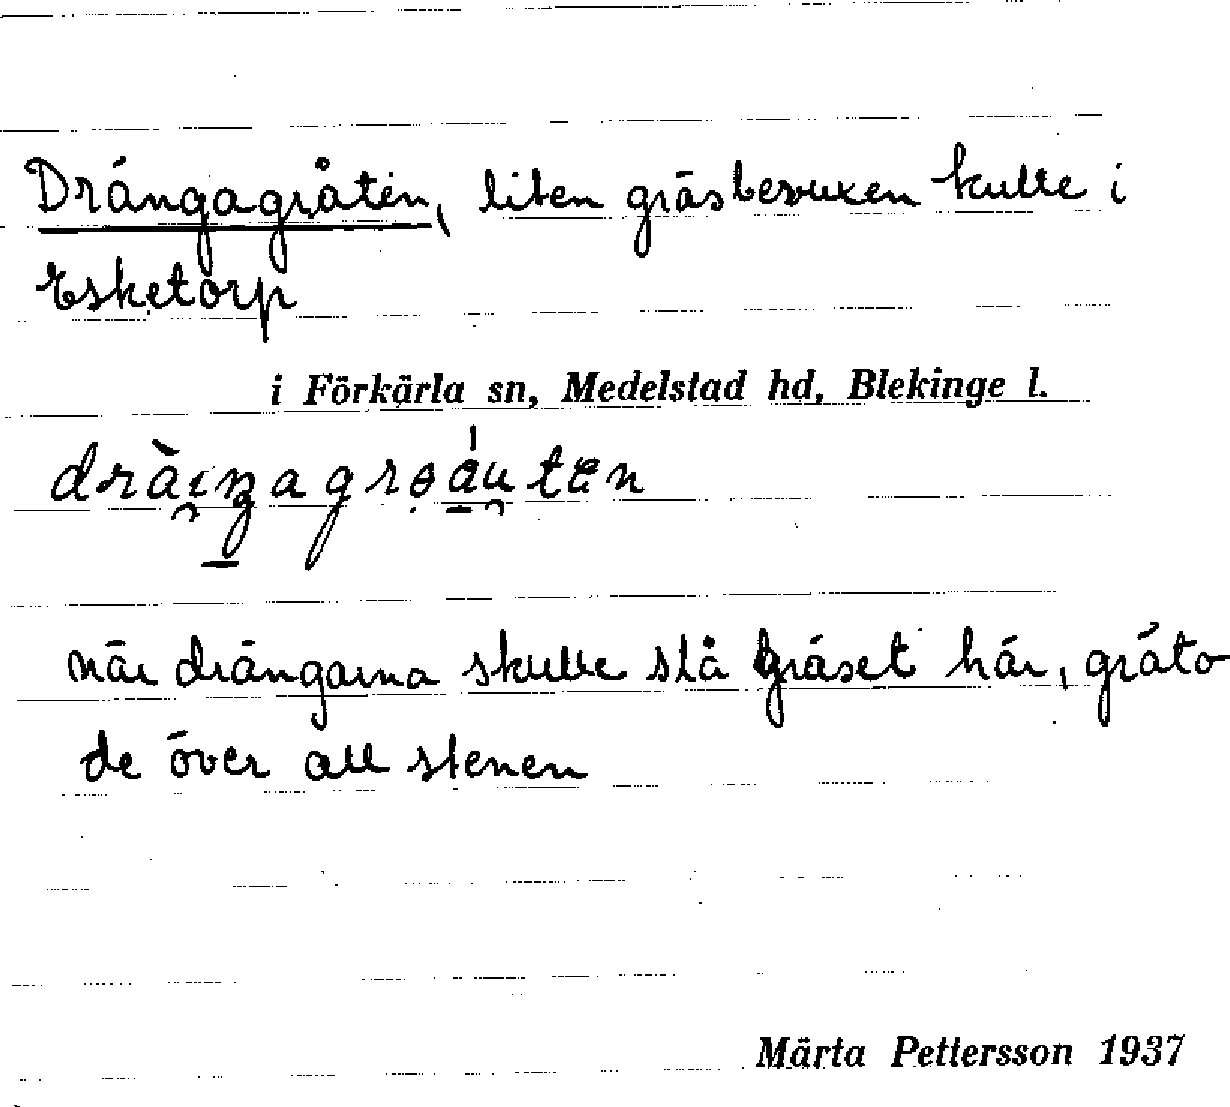 Drängagråten, liten gräsbevuxen kulle i
Esketorp
i Förkärla sn, Medelstad hd, Blekinge l.
när drängarna skulle slå gräset här, gräto
de över all stenen
Märta Pettersson 1937